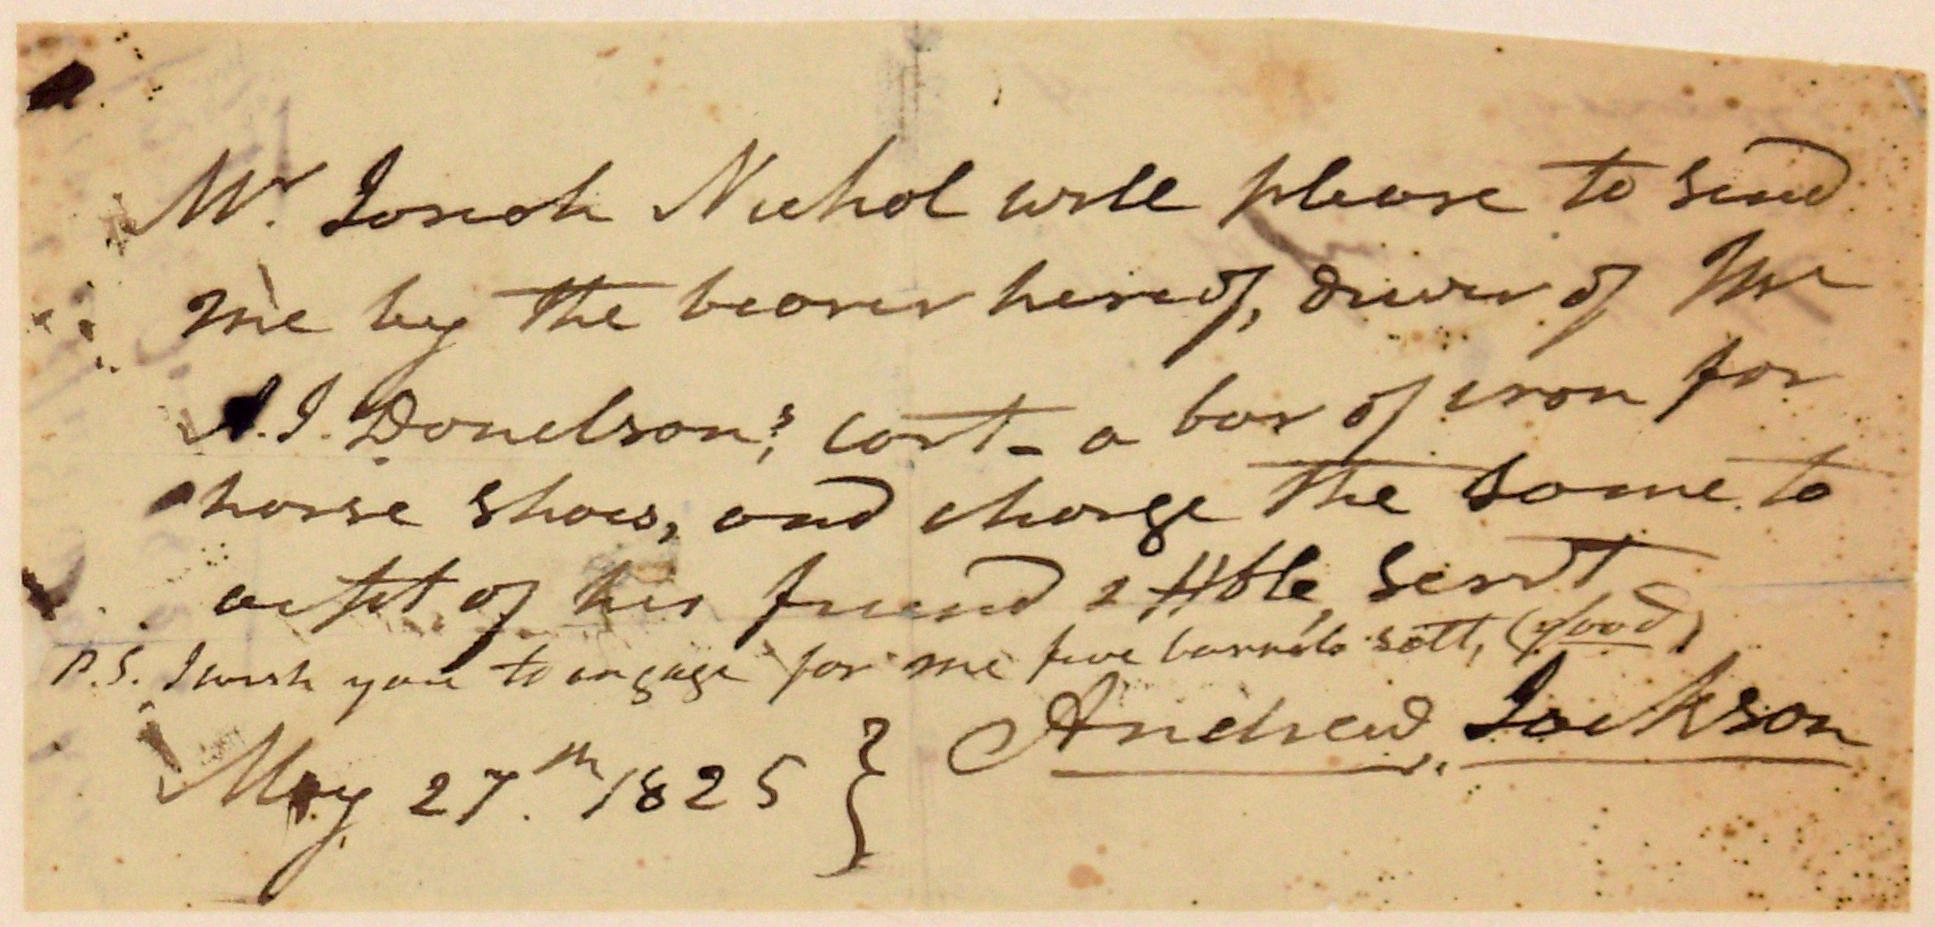 Mr. Josiah Nichol will please to send
me by the bearer hereof, driver of Mr
A. J. Donelson's, cart - a bar of iron for
horse shoes, and charge the same to
acpt of his friend & Hble, Servt
P.S. I wish you to engage for me five barrels salt, (good)
Andrew. Jackson
May 27th. 1825